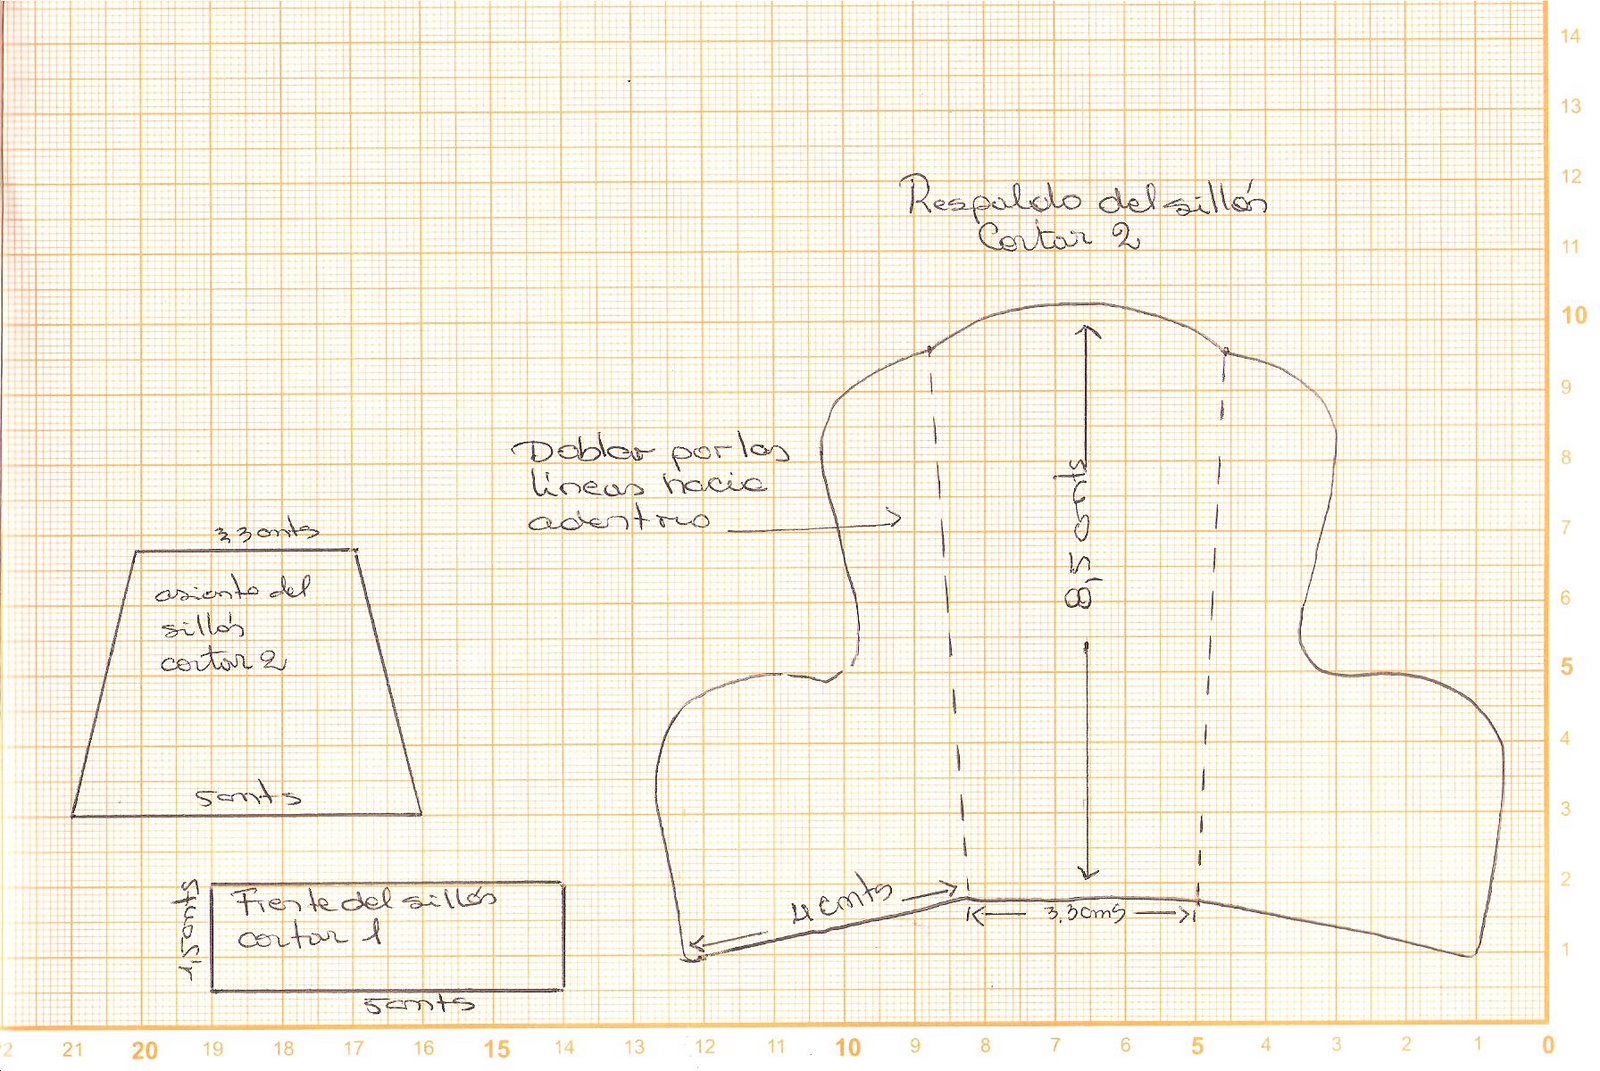 Respaldo del sillón
Cortar 2
Doblar por las
líneas hacia
adentro
8,5 cmts
4 cmts
3,3 cms
3,3 cmts
asiento del
sillón
cortar 2
5 cmts
Frente del sillón
cortar 1
1,5 cmts
5 cmts
14
13
12
11
10
9
8
7
6
5
4
3
2
1
22 21 20 19 18 17 16 15 14 13 12 11 10 9 8 7 6 5 4 3 2 1 0